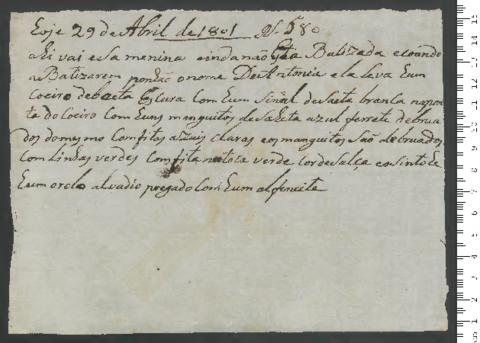 Eoje 29 de Abril de 1801 Nº 580
aLi vai esa menina eindanão esta Batizada ecoando
a Batizarem ponhão onome De Antonia ela leva Eum
Coeiro debaeta escura Com Eum Sinal debaeta branca napon
ta do Coeiro Com Euns manguitos debaeta azul ferrete debrua
dos domesmo Comfitas azuis claras eosmanguitos São debruados
Com Linhas verdes Comfita natota verde Cordesalça eosinto de
Eum orelo alvadio pregado Com Eum alfenite